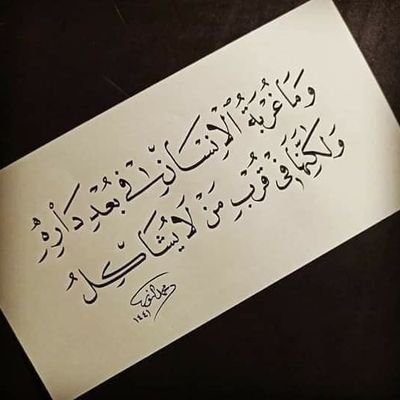 وَمَا غُرْبَةُ الْإِنْسَانِ فِي بُعْدِ دَارِهِ
وَلَكِنَّهَا فِي قُرْبِ مَنْ لَا يُشَاكِلُ
١٤٤١